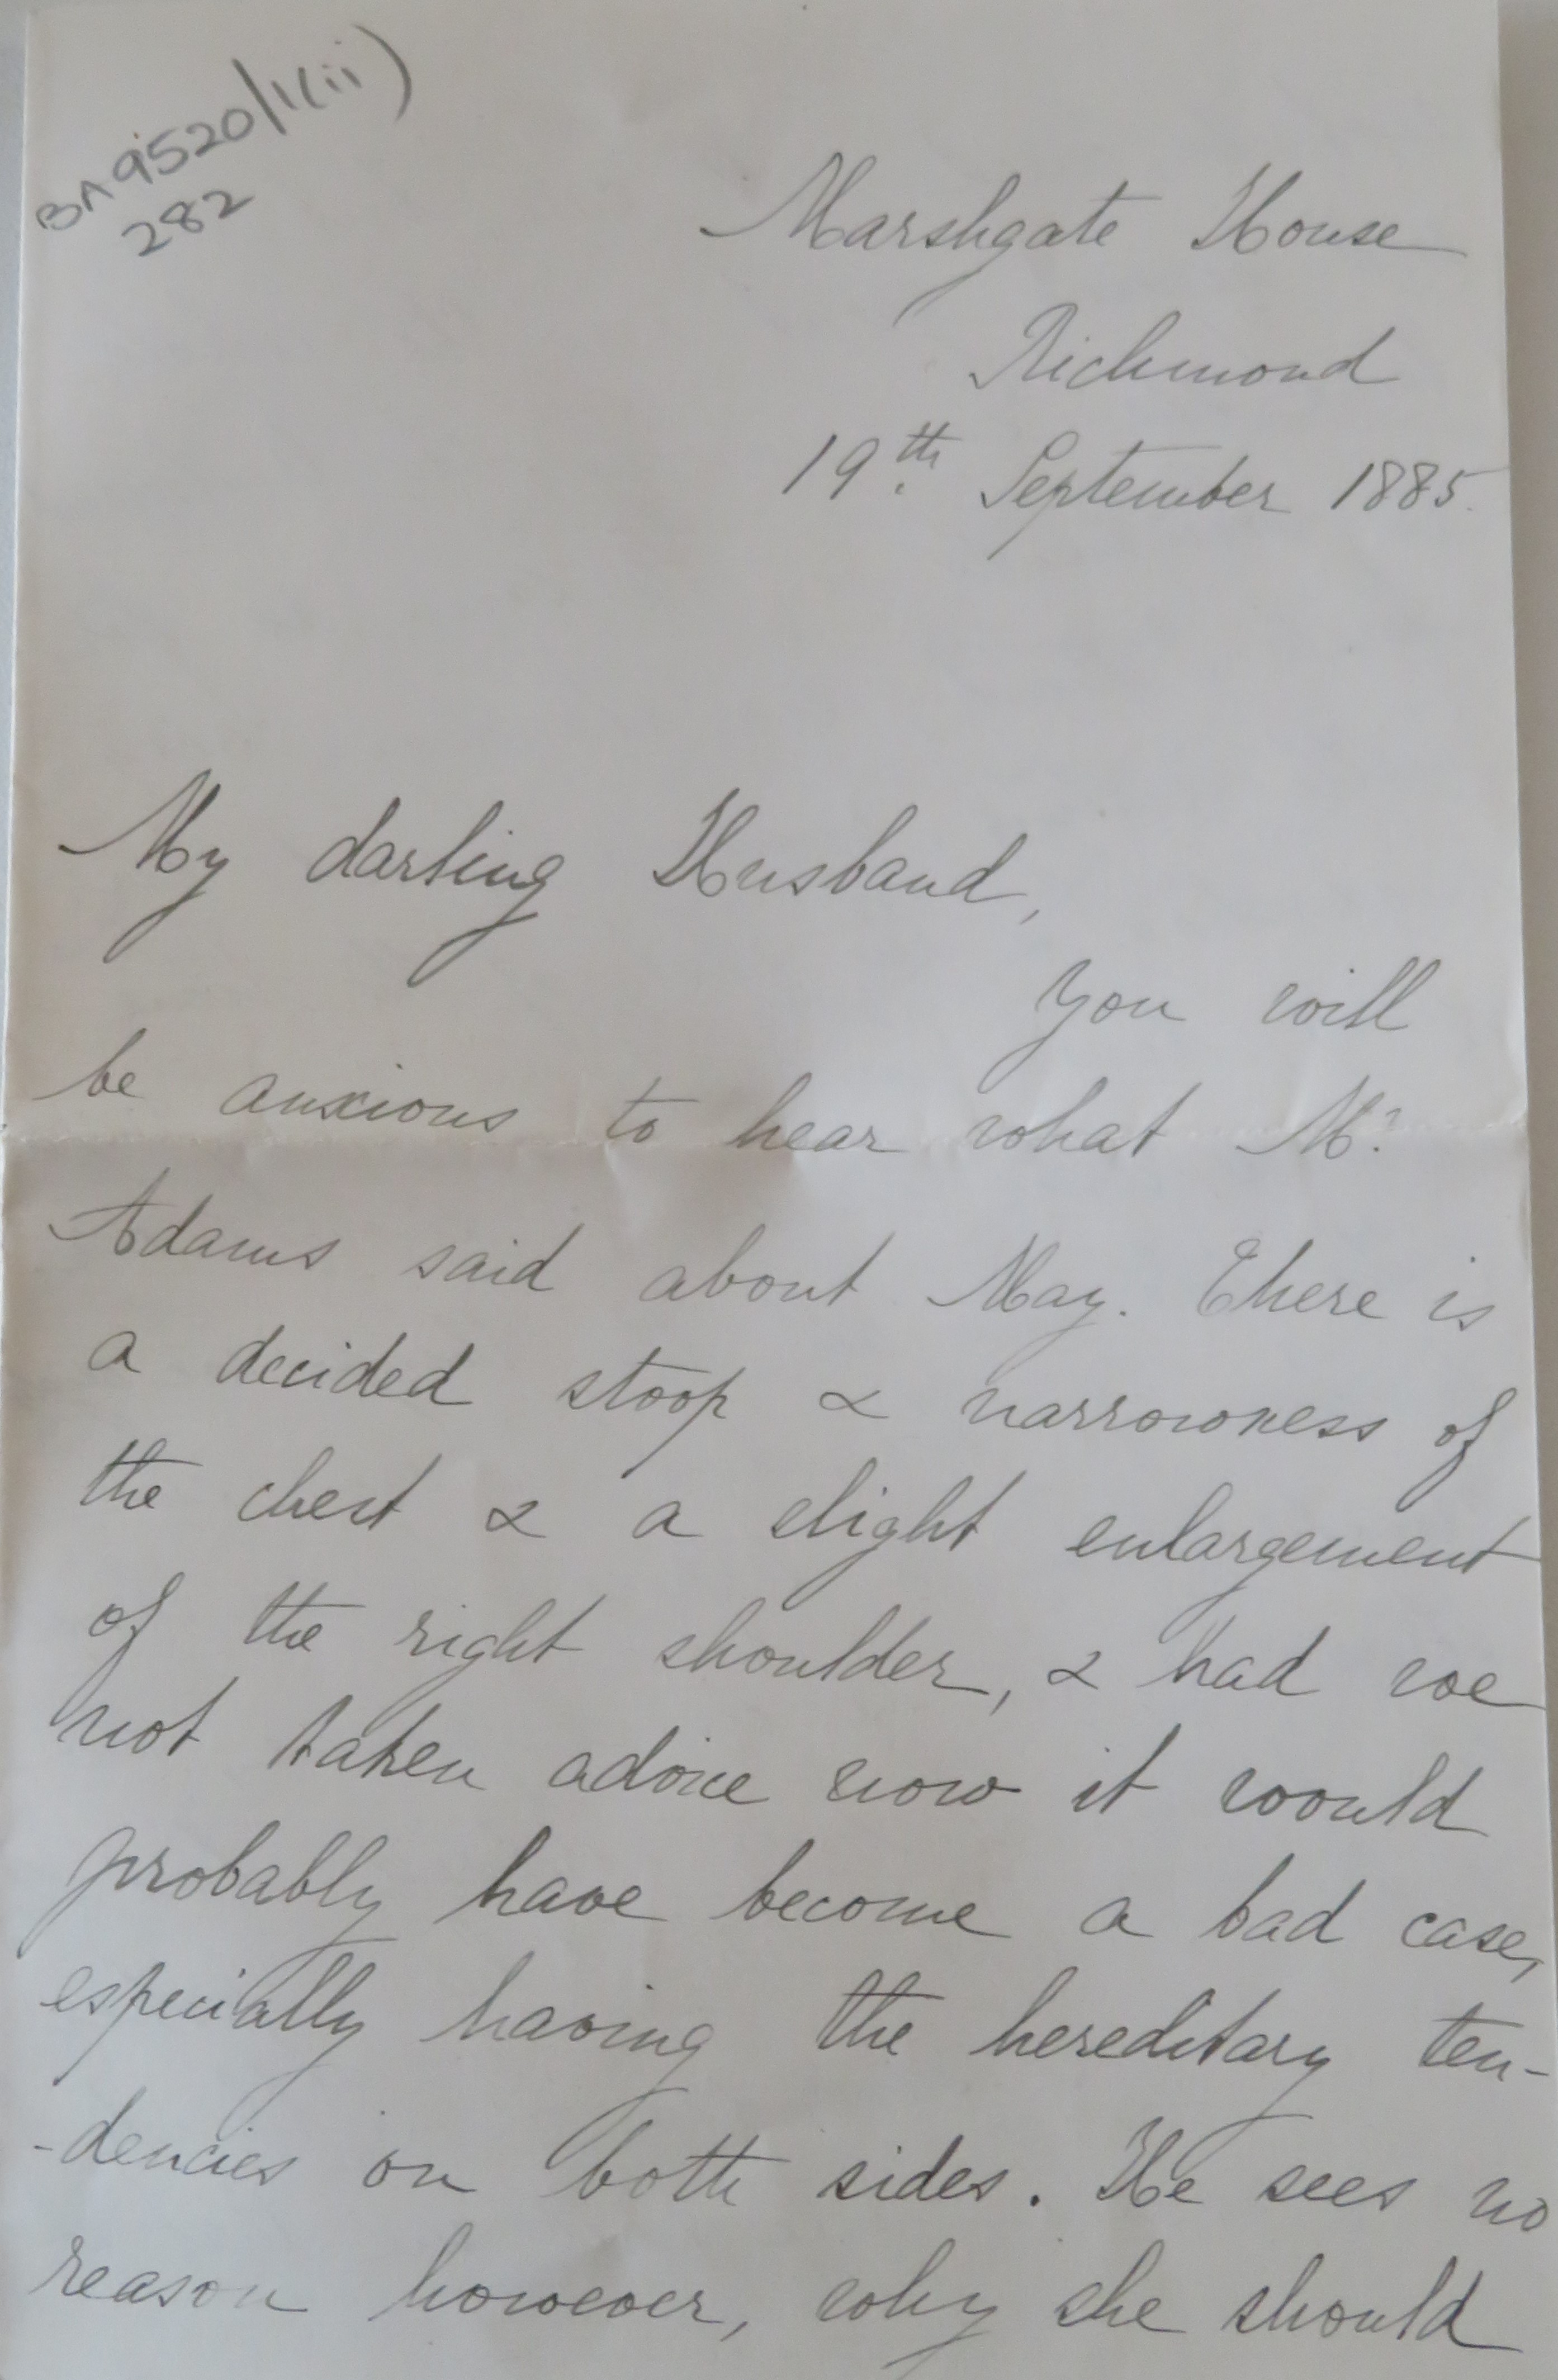 BA9520/1(ii)
282
Marshgate House
Richmond
19th September 1885.
My darling Husband,
You will
be anxious to hear what Mr.
Adams said about May. There is
a decided stoop & narrowness of
the chest & a slight enlargement
of the right shoulder, & had we
not taken advice now it would
probably have become a bad case,
especially having the hereditary ten-
-dencies on both sides. He sees no
reason however, why she should